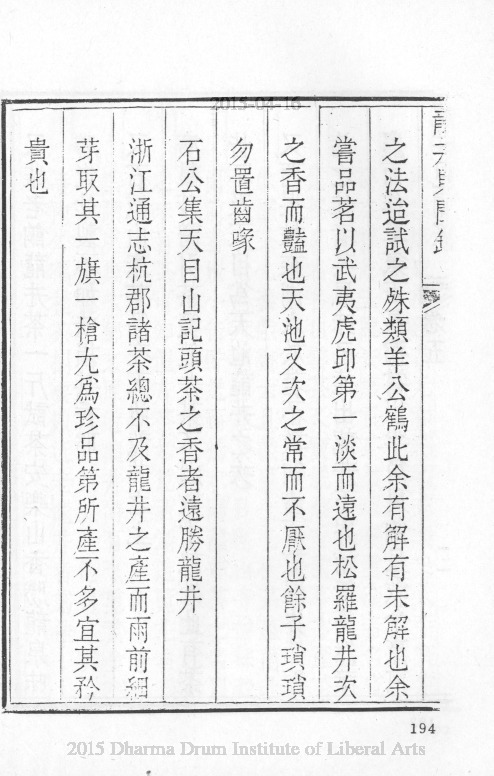 2015-04-16
龍井見聞錄
之法迨試之殊類羊公鶴此余有解有未解也余
嘗品茗以武夷虎邱第一淡而遠也松羅龍井次
之香而豔也天池又次之常而不厭也餘子瑣瑣
勿置齒喙
石公集天目山記頭茶之香者遠勝龍井
浙江通志杭郡諸茶總不及龍井之產而雨前細
芽取其一旗一槍尤爲珍品第所產不多宜其矜
貴也
194
2015 Dharma Drum Institute of Liberal Arts